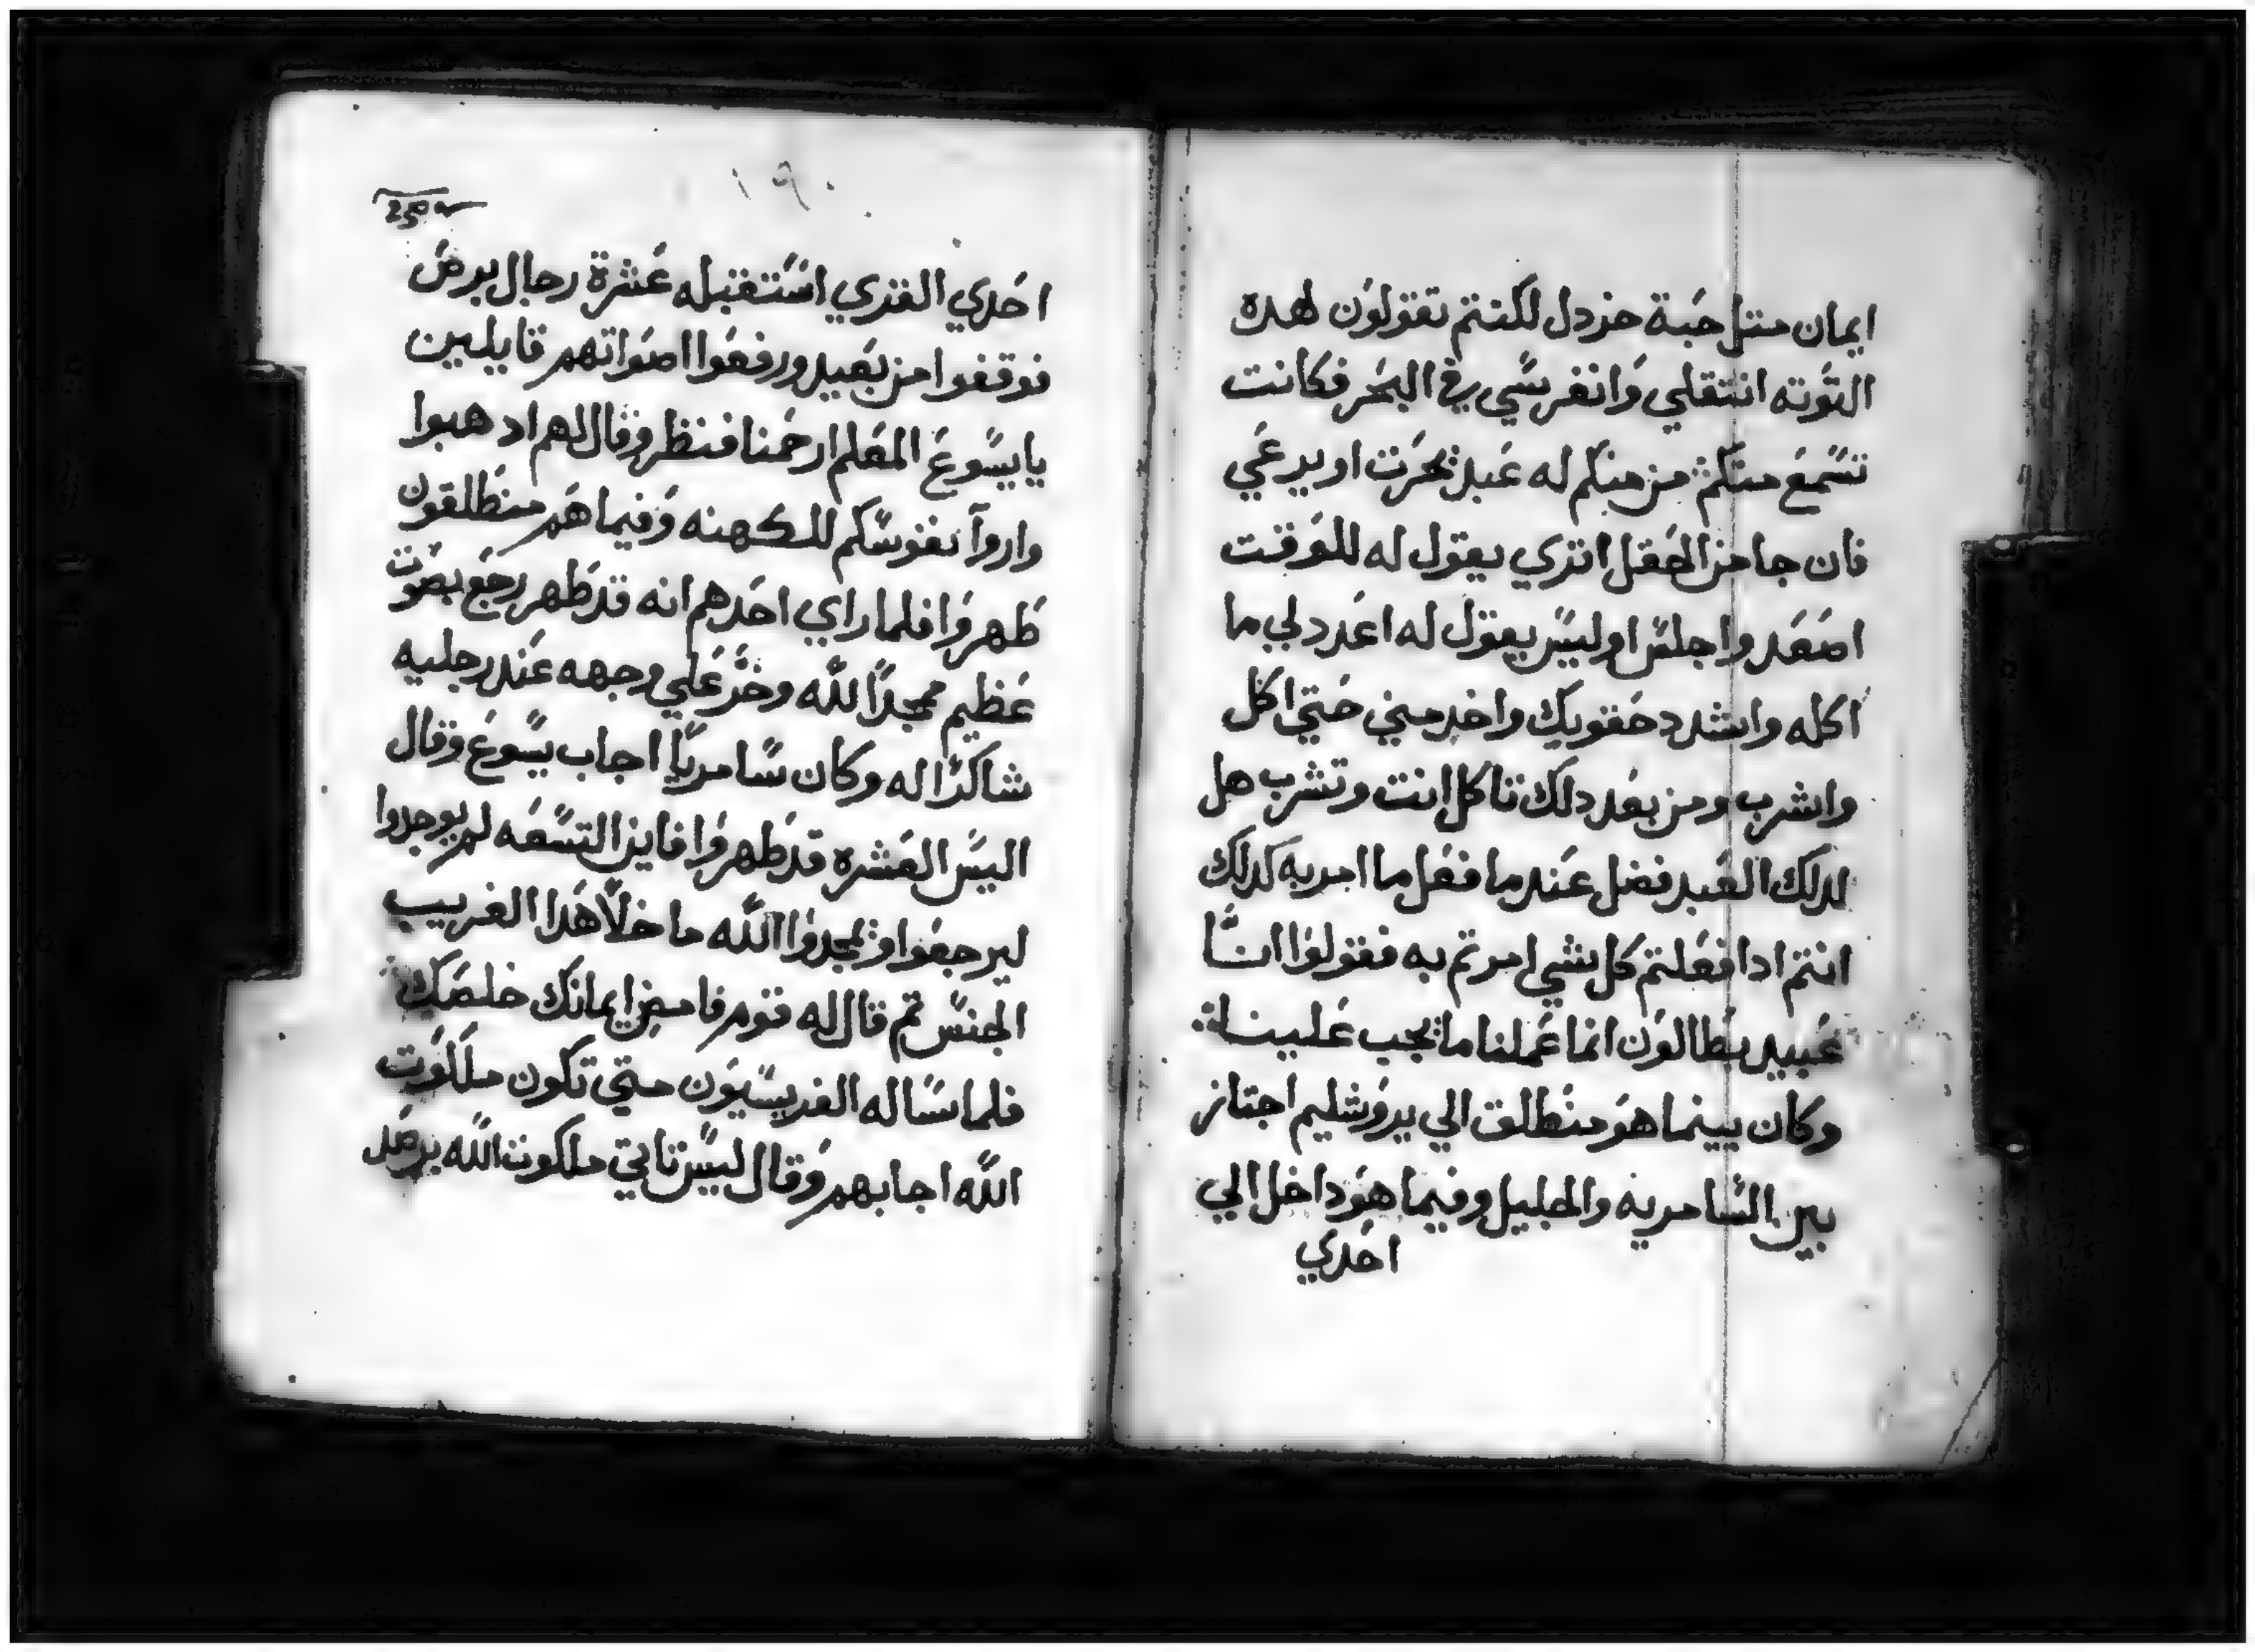 ايمان مثل حبة خردل لكنتم تقولون لهده
التوته انتقلي وانغرسي في البحر فكانت
تسمع منكم من منكم له عبد يحرت او يرعي
فان جا من الحقل اتري يقول له للوقت
اصعد واجلس اوليس يقول له اعدد لي ما
اكله واشدد حقويك واخدمني حتي اكل
واشرب ومن بعد دلك تاكل انت وتشرب هل
لدلك العبد فضل عندما فعل ما امر به كدلك
انتم ادا فعلتم كل شي امرتم به فقولوا اننا
عبيد بطالون انما عملنا ما يجب علينا
وكان بينما هو منطلق الي يروشليم اجتاز
بين السامريه والجليل وفيما هو داخل الي
احدي
١٩٠
احدي القري استقبله عشرة رجال برص
فوقفوا من بعيد ورفعوا اصواتهم قايلين
يا يسوع المعلم ارحمنا فنظر وقال لهم ادهبوا
واروا نفوسكم للكهنه وفيما هم منطلقون
طهروا فلما راي احدهم انه قد طهر رجع بصوت
عظيم ممجدا لله وخر علي وجهه عند رجليه
شاكرا له وكان سامريا اجاب يسوع وقال
اليس العشره قد طهروا فاين التسعه لم يوجدوا
ليرجعوا ويمجدوا الله ما خلا هدا الغريب
الجنس تم قال له قوم فامض ايمانك خلصك
فلما ساله الفريسيون متي تكون ملكوت
الله اجابهم وقال ليس تاتي ملكوت الله برصد